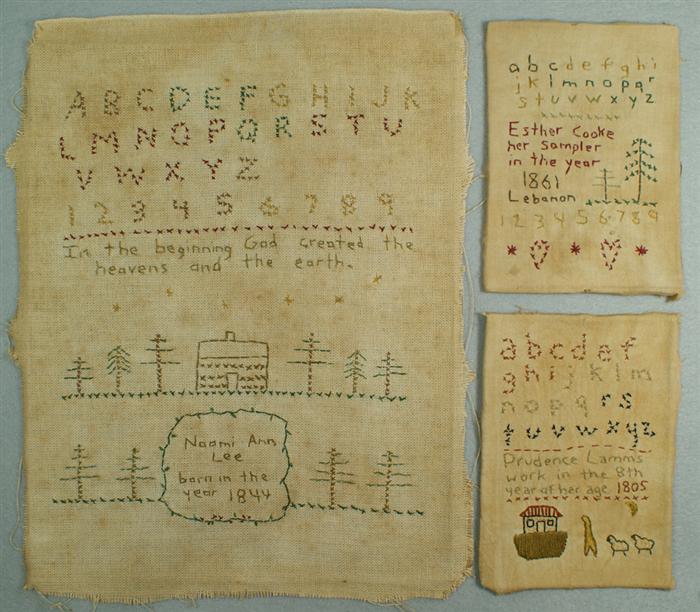 A B C D E F G H I J K
L M N O P Q R S T U
V W X Y Z
1 2 3 4 5 6 7 8 9
In the beginning God created the
heavens and the earth.
Naomi Ann
Lee
born in the
year 1844
a b c d e f g h i
j k l m n o p q r
s t u v w x y z
Esther Cooke
her sampler
in the year
1861
Lebanon
1 2 3 4 5 6 7 8 9
a b c d e f
g h i j k l m
n o p q r s
t u v w x y z
Prudence Lamms
work in the 8th
year of her age 1805